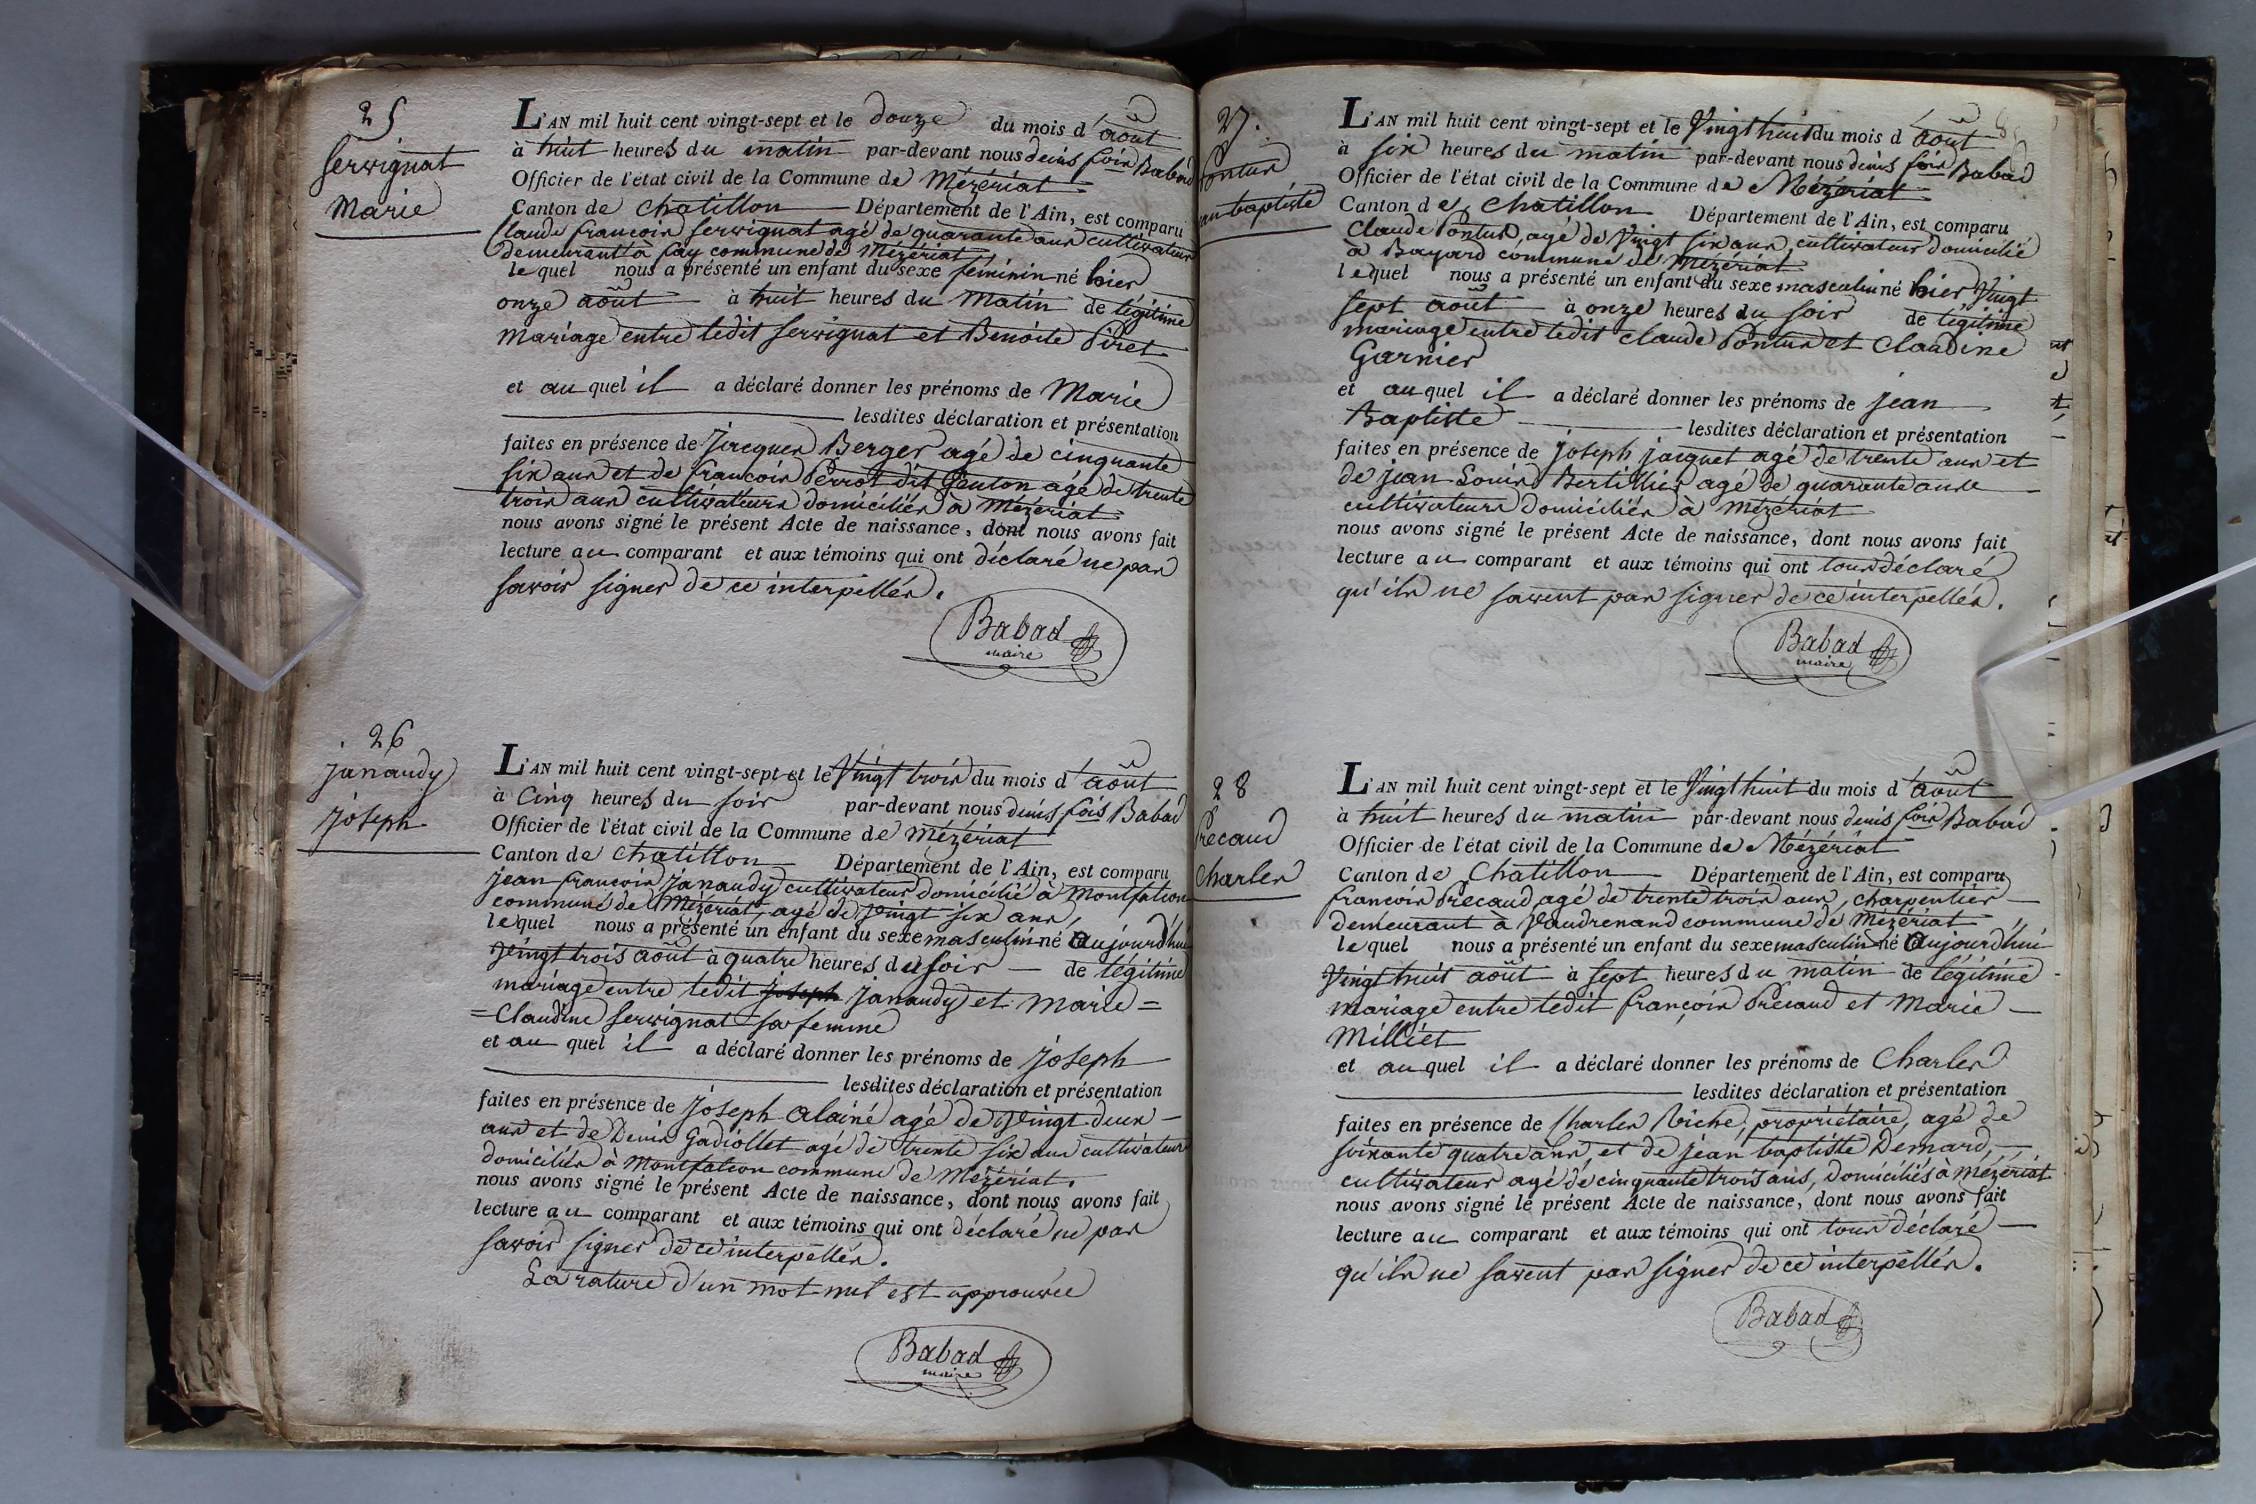 25
Servignat
Marie
L'AN mil huit cent vingt-sept et le douze du mois d'août
à huit heures du matin par-devant nous denis fois Babad
Officier de l'état civil de la Commune de Mézériat
Canton de Chatillon Département de l'Ain, est comparu
Claude françois Servignat agé de quarante ans cultivateur
demeurant à fay commune de Mézériat
lequel nous a présenté un enfant du sexe féminin né hier
onze août à huit heures du matin de légitime
mariage entre ledit Servignat et Benoite Piret
et auquel il a déclaré donner les prénoms de Marie
lesdites déclaration et présentation
faites en présence de Jacques Berger agé de cinquante
six ans et de françois Perrot dit Genton agé de trente
trois ans cultivateurs domiciliés à Mézériat
nous avons signé le présent Acte de naissance, dont nous avons fait
lecture au comparant et aux témoins qui ont déclaré ne pas
savoir signer de ce interpellés.
Babad
maire
26
janaudy
joseph
L'AN mil huit cent vingt-sept et le Vingt trois du mois d'août
à Cinq heures du soir par-devant nous denis fois Babad
Officier de l'état civil de la Commune de Mézériat
Canton de Chatillon Département de l'Ain, est comparu
jean françois Janaudy cultivateur domicilié à Montfalcon
commune de Mézériat, agé de vingt six ans,
lequel nous a présenté un enfant du sexe masculin né aujourd'hui
vingt trois août à quatre heures du soir de légitime
mariage entre ledit joseph Janaudy et Marie =
= Claudine Servignat sa femme
et au quel il a déclaré donner les prénoms de joseph
lesdites déclaration et présentation
faites en présence de joseph alainé agé de Vingt deux
ans et de Denis Gadiollet agé de trente six ans cultivateurs
domiciliés à Montfalcon commune de Mézériat.
nous avons signé le présent Acte de naissance, dont nous avons fait
lecture au comparant et aux témoins qui ont déclaré ne pas
savoir signer de ce interpellés.
La rature d'un mot nul est approuvée
Babad
maire
27.
Pontus
an baptiste
L'AN mil huit cent vingt-sept et le Vingt huit du mois d'août
à six heures du matin par-devant nous denis fois Babad
Officier de l'état civil de la Commune de Mézériat
Canton de Chatillon Département de l'Ain, est comparu
Claude Pontus, agé de Vingt six ans, cultivateur domicilié
à Bayard commune de Mézériat
lequel nous a présenté un enfant du sexe masculin né hier Vingt
sept août à onze heures du soir de légitime
mariage entre ledit Claude Pontus et Claudine
Garnier
et auquel il a déclaré donner les prénoms de jean
Baptiste lesdites déclaration et présentation
faites en présence de joseph jacquet agé de trente ans et
de jean Louis Bertillier agé de quarante ans
cultivateurs domiciliés à Mézériat
nous avons signé le présent Acte de naissance, dont nous avons fait
lecture au comparant et aux témoins qui ont tous déclaré
qu'ils ne savent pas signer de ce interpellés.
Babad
maire
28
Precaud
Charles
L'AN mil huit cent vingt-sept et le Vingt huit du mois d'août
à huit heures du matin par-devant nous denis fois Babad
Officier de l'état civil de la Commune de Mézériat
Canton de Chatillon Département de l'Ain, est comparu
françois Precaud, agé de trente trois ans, charpentier
demeurant à Vaudrenand commune de Mézériat
lequel nous a présenté un enfant du sexe masculin né aujourd'hui
Vingt huit août à sept heures du matin de légitime
mariage entre ledit françois Precaud et Marie
Milliet
et auquel il a déclaré donner les prénoms de Charles
lesdites déclaration et présentation
faites en présence de Charles Riche, propriétaire, agé de
soixante quatre ans, et de jean baptiste Bernard,
cultivateur agé de cinquante trois ans, domiciliés à Mézériat
nous avons signé le présent Acte de naissance, dont nous avons fait
lecture au comparant et aux témoins qui ont tous déclaré
qu'ils ne savent pas signer de ce interpellés.
Babad